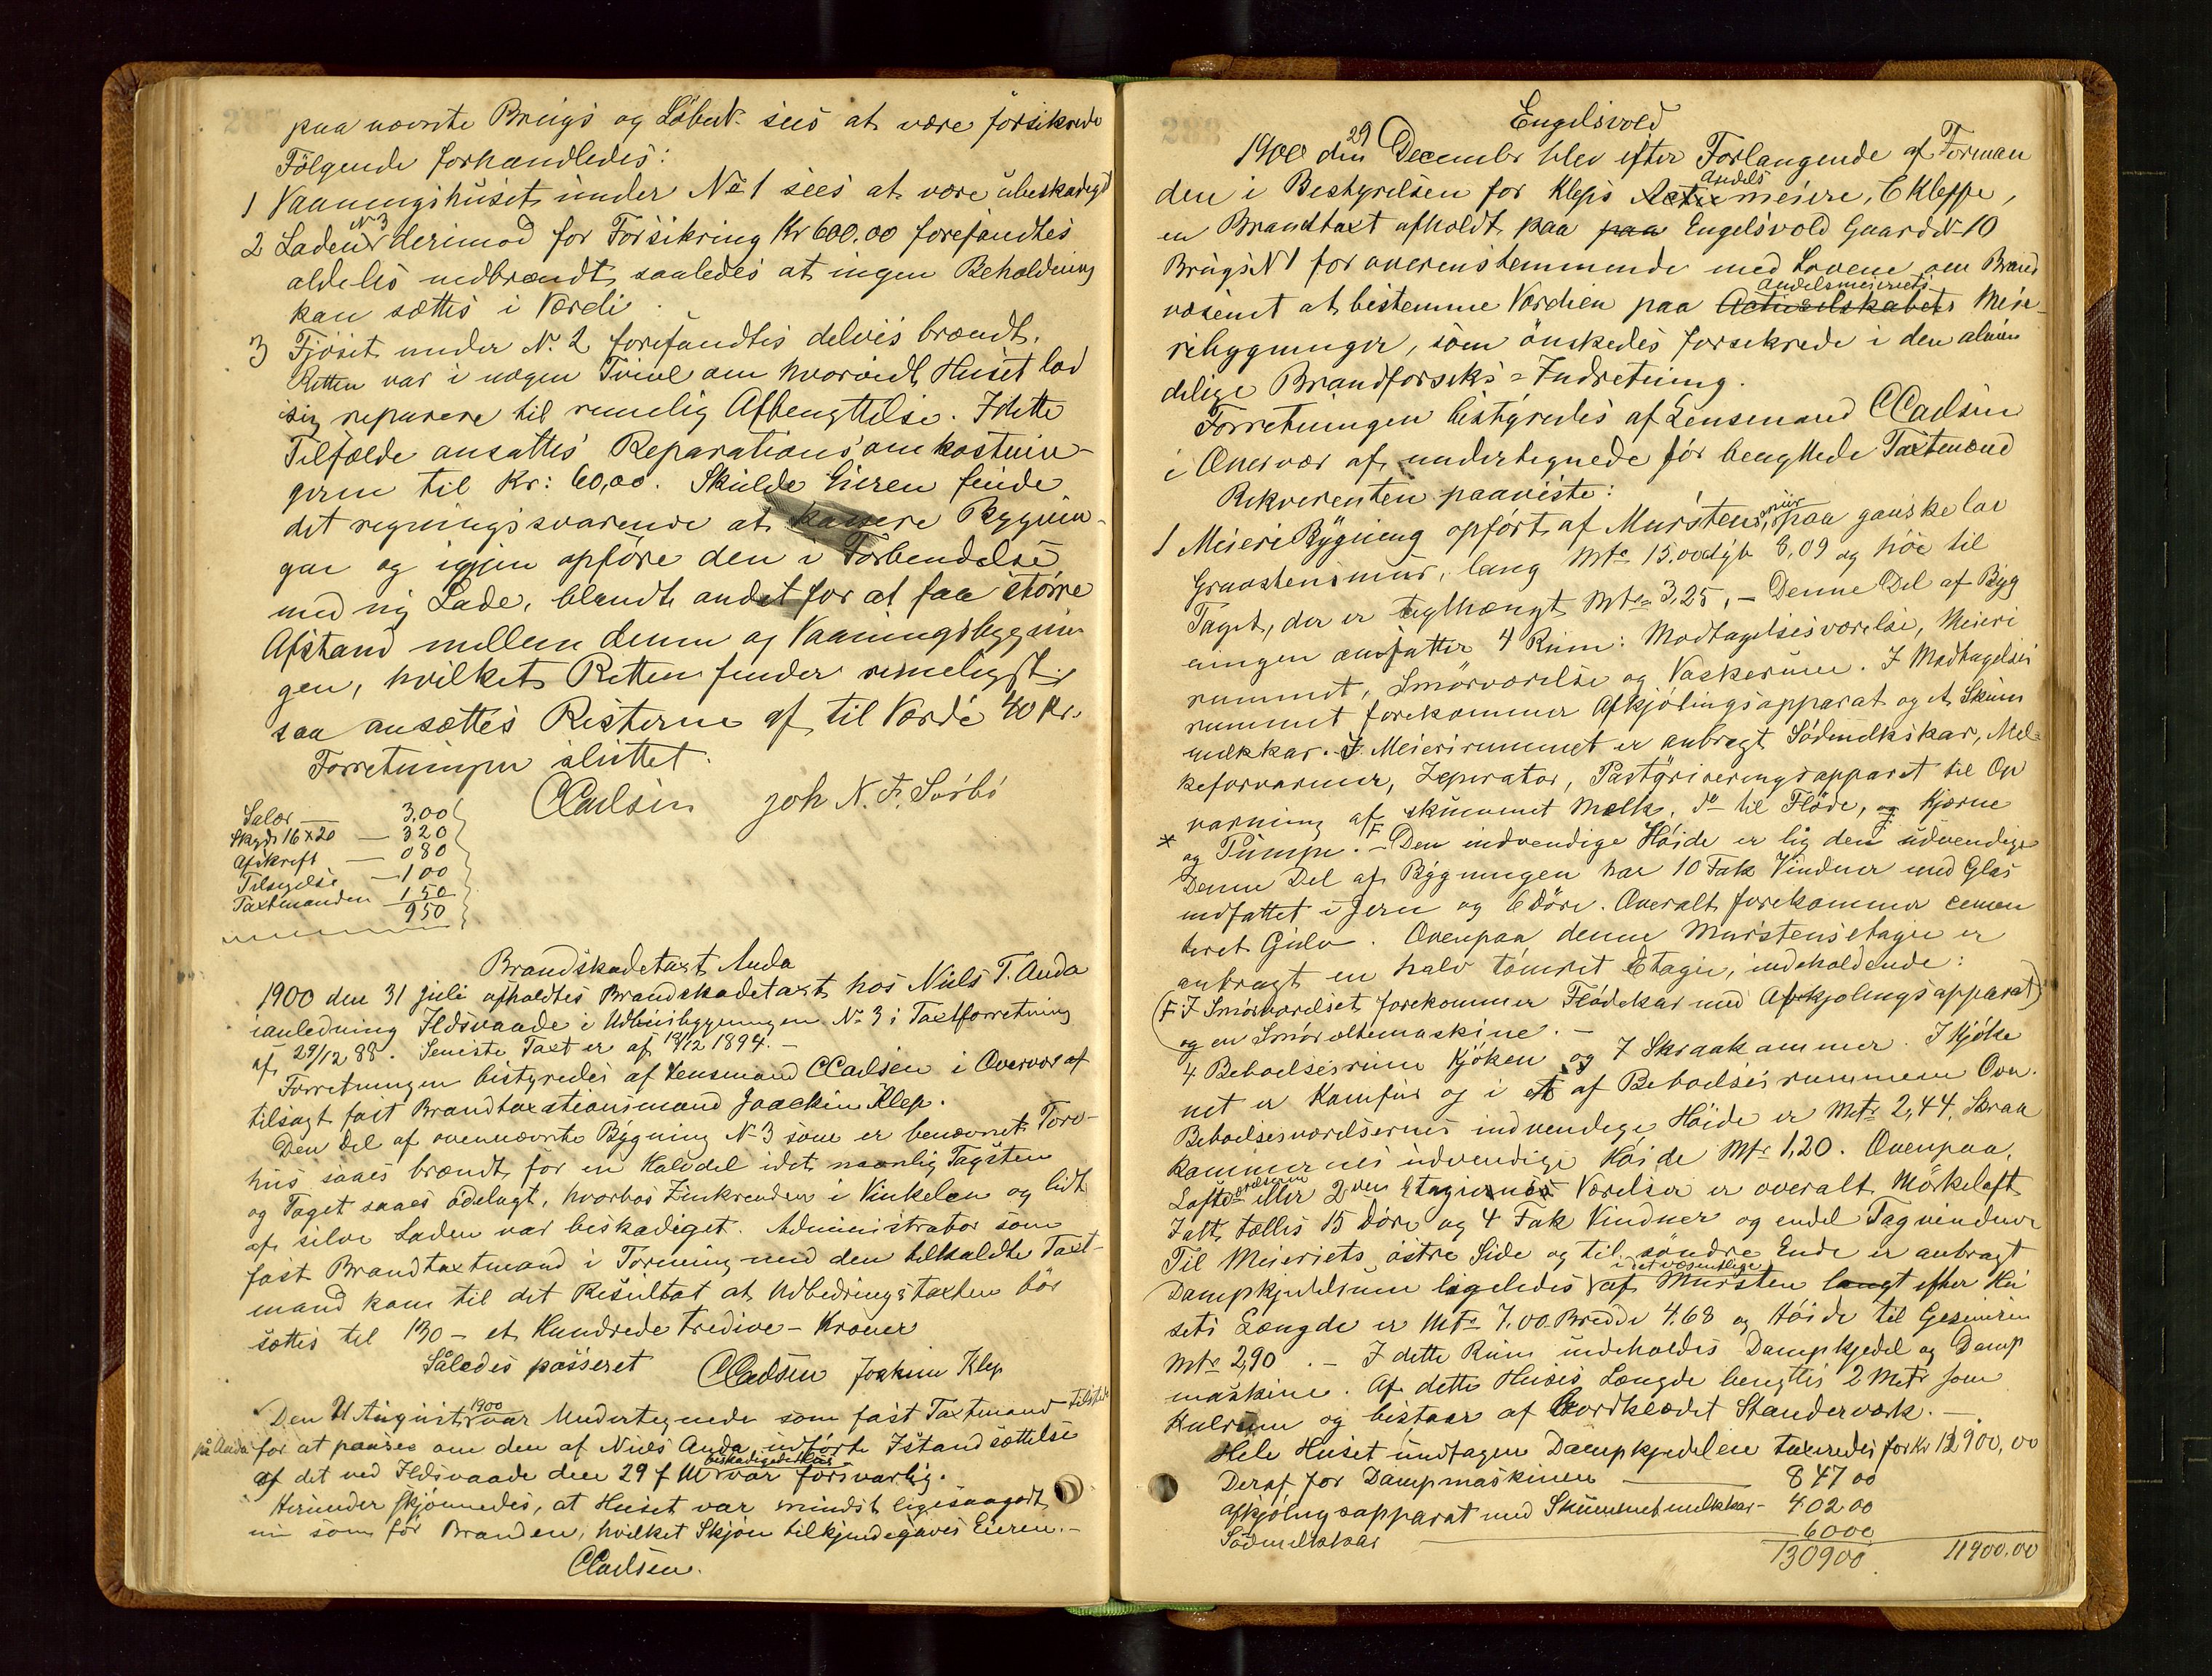 paa nævnte Brugs og Løbe N. sees at være forsikrede
Følgende forhandledes:
1 Vaaningshuset under No 1 sees at være ubeskadiget
2 Laden N. 3 derimod for Forsikring Kr 600.00 forefandtes
aldeles nedbrændt saaledes at ingen Beholdning
kan sættes i Værdi.
3 Fjøset under N. 2 forefandtes delvis brændt.
Retten var i nogen Tvivl om hvorvidt Huset lod
sig reparere til rimelig Afbenyttelse. I dette
Tilfælde ansattes Reparationsomkostnin-
gerne til Kr: 60,00. Skulde Eieren finde
det regningssvarende at kassere Bygnin-
gen og igjen opføre den i Forbindelse
med ny Lade, blandt andet for at faa større
Afstand mellem denne og Vaaningsbygnin
gen, hvilket Retten finder rimeligst
saa ansættes Resterne af til Værdi 40 Kr.
Forretningen sluttet.
CCarlsen Joh N. F. Sørbø
Salær 3,00
Skyds 16 x 20 — 320
Afskrift — 080
Tilsigelse — 100
Taxtmanden 150
950
Brandskadetaxt Anda
1900 den 31 Juli afholdtes Brandskadetaxt hos Niels T. Anda
ianledning Ildsvaade i Udhusbygningen No 3 i Taxtforretning
af 29/12 88. Seneste Taxt er af 18/12 1894.—
Forretningen bestyredes af Lensmand CCarlsen i Overvær af
tilsagt fast Brandtaxationsmand Joachim Klep.
Den Del af ovennævnte Bygning No 3 som er benævnt Torv-
hus saaes brændt for en Halvdel idet navnlig Tagsten
og Taget saaes ødelagt, hvorhos Zinkrenden i Vinkelen og lidt
af selve Laden var beskadiget. Administrator som
fast Brandtaxtmand i Forening med den tilkaldte Taxt-
mand kom til det Resultat at Udbedringstaxten bør
sættes til 130 - et Hundrede tredive - Kroner
Således passeret CCarlsen Joakim Klep
Den 21 August 1900 var Undertegnede som fast Taxtmand tilstede
på Anda for at paasee om den af Niels Anda udførte Istandsættelse
af det ved Ildsvaade den 29 f. M beskadigede Hus var forsvarlig.
Herunder skjønnedes, at Huset var mindst ligesaagodt
nu som før Branden, hvilket Skjøn tilkjendegaves Eieren.—
CCarlsen.
Engelsvold
1900 den 29 December blev efter Forlangende af Forman
den i Bestyrelsen for Kleps Actie Andels meieri, E Kleppe,
en Brandtaxt afholdt paa paa Engelsvold Gaard N 10
Brugs N 1 for overenstemmende med Lovene om Brand
væsenet at bestemme Værdien paa Actieselskabets Andelsmeieriets Meie-
ribygninger, som ønskedes forsikrede i den almin
delige Brandforsikrs = Indretning.
Forretningen bestyredes af Lensmand CCarlsen
i Overvær af undertegnede før benyttede Taxtmænd
Rekvirenten paaviste:
1 Meieri Bygning opført af Murstens, mur paa ganske lav
Graastensmur, lang Mtr 15.00 dyb 8,09 og høi til
Taget, der er teglhængt Mtr 3,25,— Denne Del af Byg
ningen omfatter 4 Rum: Modtagelsesværelse, Meieri
rummet, Smørværelse og Vaskerum. I Modtagelses
rummet forekommer Afkjølingsapparat og et Skum
melkkar. I Meierirummet er anbragt Sødmelkskar, Mel-
keforvarmer, Zeperator, Pastøriseringsapparat til Op
varming af skummet Melk, do til Fløde, og Kjærne
* og Pumpe. F — Den indvendige Høide er lig den udvendige
Denne Del af Bygningen har 10 Fak Vinduer med Glas
indfattet i Jern og 6 Døre. Overalt forekommer cemen
teret Gulv. Ovenpaa denne Murstensetage er
anbragt en halv tømret Etagie, indeholdende:
(F I Smørværelset forekommer Flødekar med Afkjølingsapparat)
og en Smøreltemaskine.—
4 Beboelsesrum Kjøken og 7 Skraakammer. I Kjøke
net er Komfur og i et af Beboelsesrummene Ovn.
Beboelsesværelsernes indvendige Høide er Mtr 2,44, Skraa
kammernes udvendige Høide Mtr 1,20. Ovenpaa
Lofts værelserne eller 2den Etagiernes Værelser er overalt Mørkeloft
Ialt tælles 15 Døre og 4 Fak Vinduer og endel Tagvinduer
Til Meieriets østre Side og til søndre Ende er anbragt
Dampkjedelrum ligeledes i det væsentlige af Mursten langt efter Hu
sets Længde er Mtr 7.00 Bredde 4.68 og Høide til Gesimsen
Mtr 2,90.— I dette Rum indeholdes Dampkjedel og Damp
maskine. Af dette Huses Længde benyttes 2 Mtr som
Kulrum og bestaar af bordklædt Standerværk.—
Hele Huset undtagen Dampkjedelen taxeredes for Kr 12900,00
Deraf for Dampmaskinen — 847 00
Afkjølingsapparat med Skummetmelkkar - 402.00
Sødmelkskar — 6000
130900 11900.00